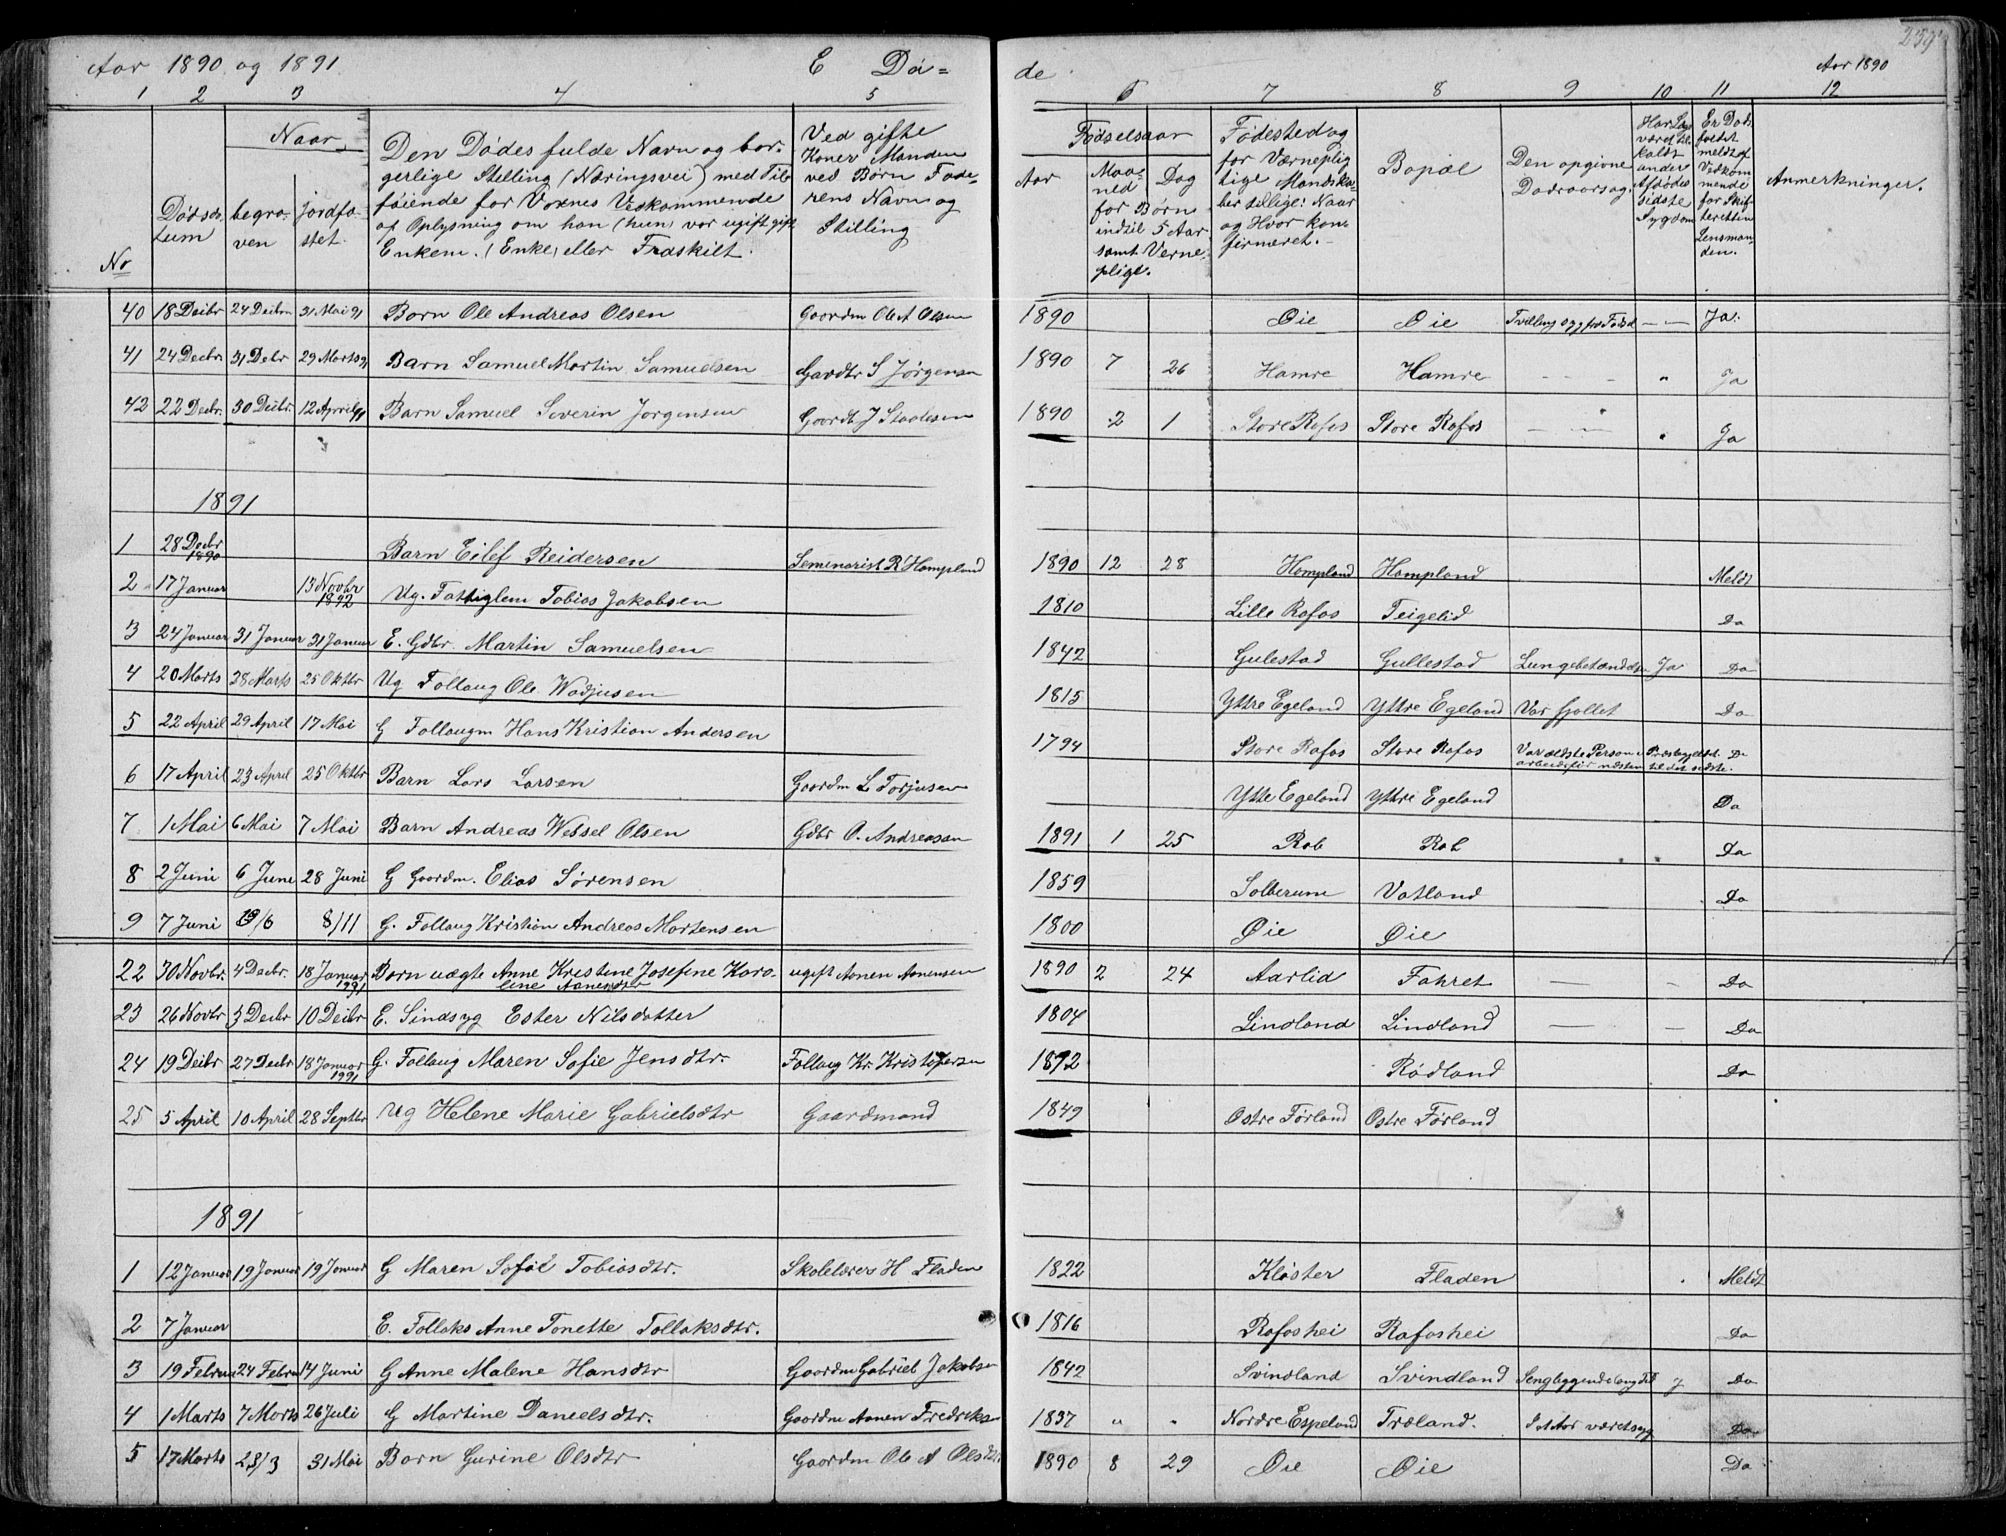 Aar 1890 og 1891 E Dö= de Aar 1890
1 2 3 4 5 6 7 8 9 10 11 12
No
Dödsda-
tum
Naar
begra-
ven
jordfæ-
stet.
Den Dödes fulde Navn og bor-
gerlige Stilling (Næringsvei) med Til-
föiende for Voxnes Vedkommende
af Oplysning om han (hun) var ugift, gift
Enkem. (Enke) eller Fraskilt.
Ved gifte
Koner Manden
ved Börn Fade-
rens Navn og
Stilling
Födselsaar
Aar
Maa-
ned
Dag
for Börn
indtil 5 Aar
samt Verne-
plige.
Födested og
for Værneplig
tige Mandska-
ber tillige: Naar
og Hvor kon-
firmeret.
Bopæl
Den opgivne
Dødsaarsag.
Har Læge
været til-
kaldt
under
Afdødes
sidste
Sygdom
Er Döds-
faldet
meldt af
Vedkom-
mende
for Skif-
teretten
Lensman-
den.
Anmerkninger.
40 18 Decbr 24 Decbr 31 Mai 91 Barn Ole Andreas Olsen Gaardm Ole A Olsen 1890 Øie Øie Tvilling og for Født — — Ja.
41 24 Decbr 31 Debr 29 Marts 91 Barn Samuel Martin Samuelsen Gardbr S Jørgensen 1890 7 26 Hamre Hamre - - - " Ja
42 22 Decbr. 30 Decbr. 12 April 91 Barn Samuel Severin Jørgensen Gaardb. J Staalesen 1890 2 1 Store Rafos Store Rafos — — " Ja
1891
1 28 Decbr 1890 Barn Eilef Reidersen Seminarist R Hompland 1890 12 28 Hompland Hompland Meldt
2 17 Januar 13 Novbr 1892 Ug. Fattiglem Tobias Jakobsen 1810 Lille Rafos Teigelid Do
3 24 Januar 31 Januar 31 Januar E. Gdbr. Martin Samuelsen 1842 Gulestad Gullestad Lungebetændelse Ja Do
4 20 Marts 28 Marts 25 Oktbr Ug Follaug Ole Wadjusen 1815 Yttre Egeland Yttre Egeland Var fjollet Do
5 22 April 29 April 17 Mai G Follaugm Hans Kristian Andersen 1794 Store Rafos Store Rafos Var ældste Person i Præstegjeldet. Do
arbeidsför næsten til det sidste.
6 17 April 23 April 25 Oktbr Barn Lars Larsen Gaardm L Torjusen Ytte Egeland Yttre Egeland Do
7 1 Mai 6 Mai 7 Mai Barn Andreas Wetsel Olsen Gdbr O. Andreassen 1891 1 25 Rob Rob Do
8 2 Juni 6 June 28 Juni G Gaardm. Elias Sørensen 1859 Solberum Vatland Do
9 7 Juni 13/6 8/11 G. Follaug Kristian Andreas Mortensen 1800 Øie Øie
22 30 Novbr. 4 Decbr. 18 Januar 1891 Barn uægte Anne Kristine Josefine Karo-
line Aanensdtr ugift Aanen Aanensen 1890 2 24 Aarlid Fahret — - Do
23 26 Novbr 3 Decbr 10 Decbr E. Sindsyg Ester Nilsdatter 1804 Lindland Lindland — — Do
24 19 Decbr 27 Decbr 18 Januar 1891 G. Follaug Maren Sofie Jensdtr. Follaug Kr. Kristofersen 1812 Rødland Do
25 5 April 10 April 28 Septbr Ug Helene Marie Gabrielsdtr Gaardmand 1849 Østre Førland Østre Førland
1891
1 12 Januar 19 Januar 19 Januar G Maren Sofie Tobiasdtr. Skolelærer H Fladen 1822 Kloster Fladen Meldt
2 7 Januar E. Follaks Anne Tonette Tollaksdtr. 1816 Rafoshei Rafoshei Do
3 19 Februar 24 Febru 14 Juni G Anne Malene Hansdtr Gaardm Gabriel Jakobsen 1842 Svindland Svindland Sengliggende lang Tid J Do
4 1 Marts 7 Marts 26 Juli G Martine Danielsdtr. Gaardm Aanen Fredriksen 1837 " " Nordre Espeland Træland. I A Aar været syg Do
5 17 Marts 23/3 31 Mai Barn Gurine Olsdtr Gaardm Ole A Olsen 1890 8 29 Øie Øie Do